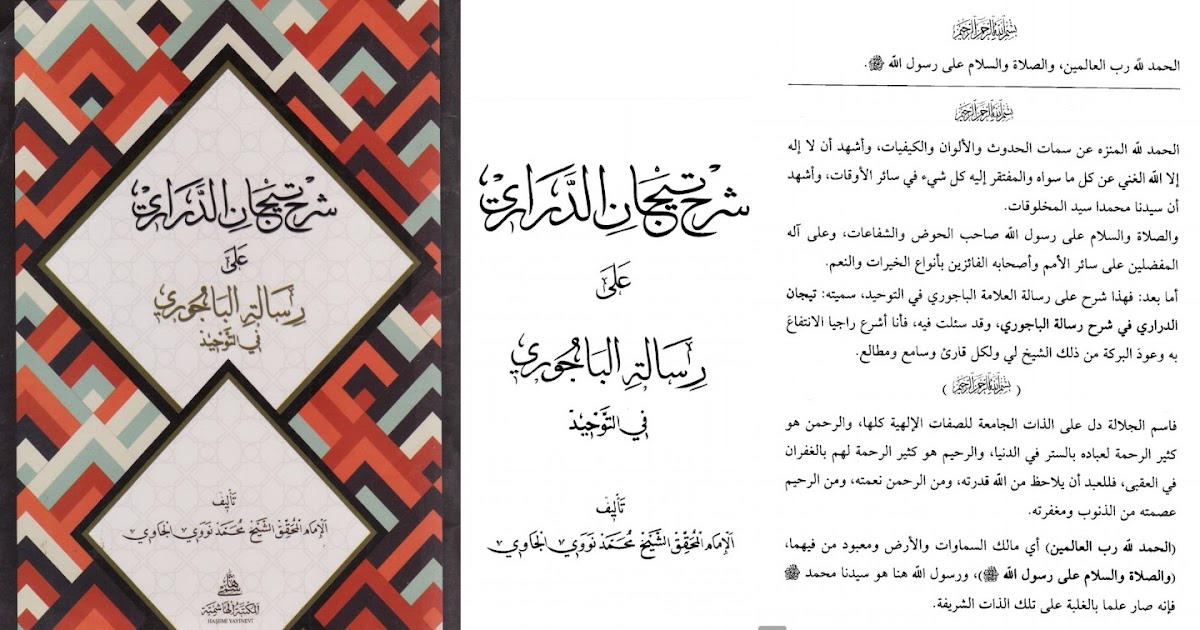 شرح تيجان الدراري
على
رسالة الباجوري
في التوحيد
تأليف
الإمام المحقق الشيخ محمد نووي الجاوي
المكتبة الهاشمية
HAŞEMİ YAYINEVİ
شرح تيجان الدراري
على
رسالة الباجوري
في التوحيد
تأليف
الإمام المحقق الشيخ محمد نووي الجاوي
بسم الله الرحمن الرحيم
الحمد لله رب العالمين، والصلاة والسلام على رسول الله ﷺ.
بسم الله الرحمن الرحيم
الحمد لله المنزه عن سمات الحدوث والألوان والكيفيات، وأشهد أن لا إله
إلا الله الغني عن كل ما سواه والمفتقر إليه كل شيء في سائر الأوقات، وأشهد
أن سيدنا محمدا سيد المخلوقات.
والصلاة والسلام على رسول الله صاحب الحوض والشفاعات، وعلى آله
المفضلين على سائر الأمم وأصحابه الفائزين بأنواع الخيرات والنعم.
أما بعد: فهذا شرح على رسالة العلامة الباجوري في التوحيد، سميته: تيجان
الدراري في شرح رسالة الباجوري، وقد سئلت فيه، فأنا أشرع راجيا الانتفاعَ
به وعودَ البركة من ذلك الشيخ لي ولكل قارئ وسامع ومطالع.
(بسم الله الرحمن الرحيم)
فاسم الجلالة دل على الذات الجامعة للصفات الإلهية كلها، والرحمن هو
كثير الرحمة لعباده بالستر في الدنيا، والرحيم هو كثير الرحمة لهم بالغفران
في العقبى، فللعبد أن يلاحظ من الله قدرته، ومن الرحمن نعمته، ومن الرحيم
عصمته من الذنوب ومغفرته.
(الحمد لله رب العالمين) أي مالك السماوات والأرض ومعبود من فيهما،
(والصلاة والسلام على رسول الله ﷺ)، ورسول الله هنا هو سيدنا محمد ﷺ
فإنه صار علما بالغلبة على تلك الذات الشريفة.